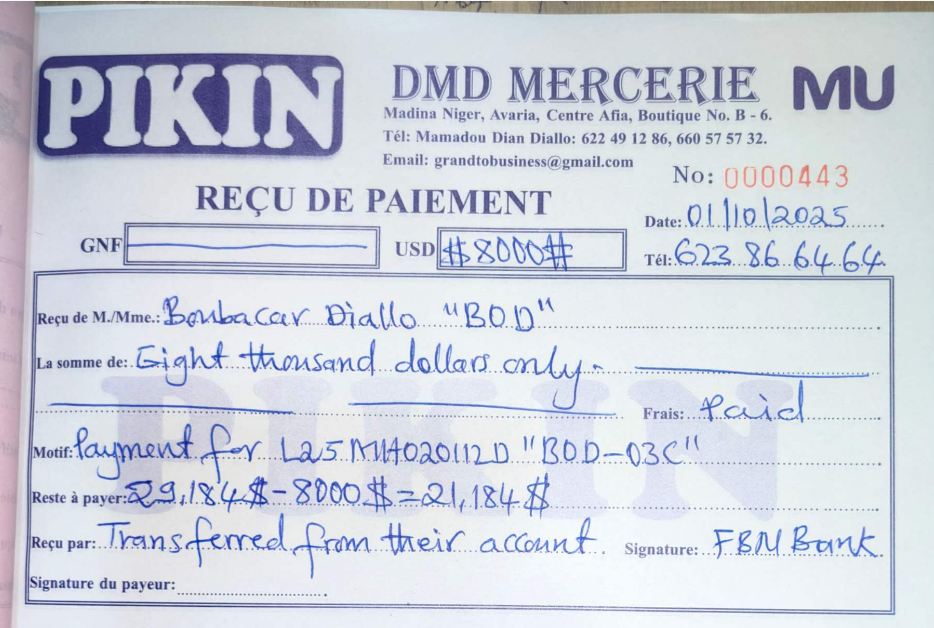 PIKIN
DMD MERCERIE MU
Madina Niger, Avaria, Centre Afia, Boutique No. B - 6.
Tél: Mamadou Dian Diallo: 622 49 12 86, 660 57 57 32.
Email: grandtobusiness@gmail.com
No: 0000443
REÇU DE PAIEMENT
Date: 01/10/2025
GNF USD #8000#
Tél: 623 86 64 64
Reçu de M./Mme.: Boubacar Diallo "BOD"
La somme de: Eight thousand dollars only.
Frais: Paid
Motif: Payment for L25MIA020112D "BOD-03C"
Reste à payer: 29,184$ - 8000$ = 21,184$
Reçu par: Transferred from their account. Signature: FBN Bank
Signature du payeur:
PIKIN